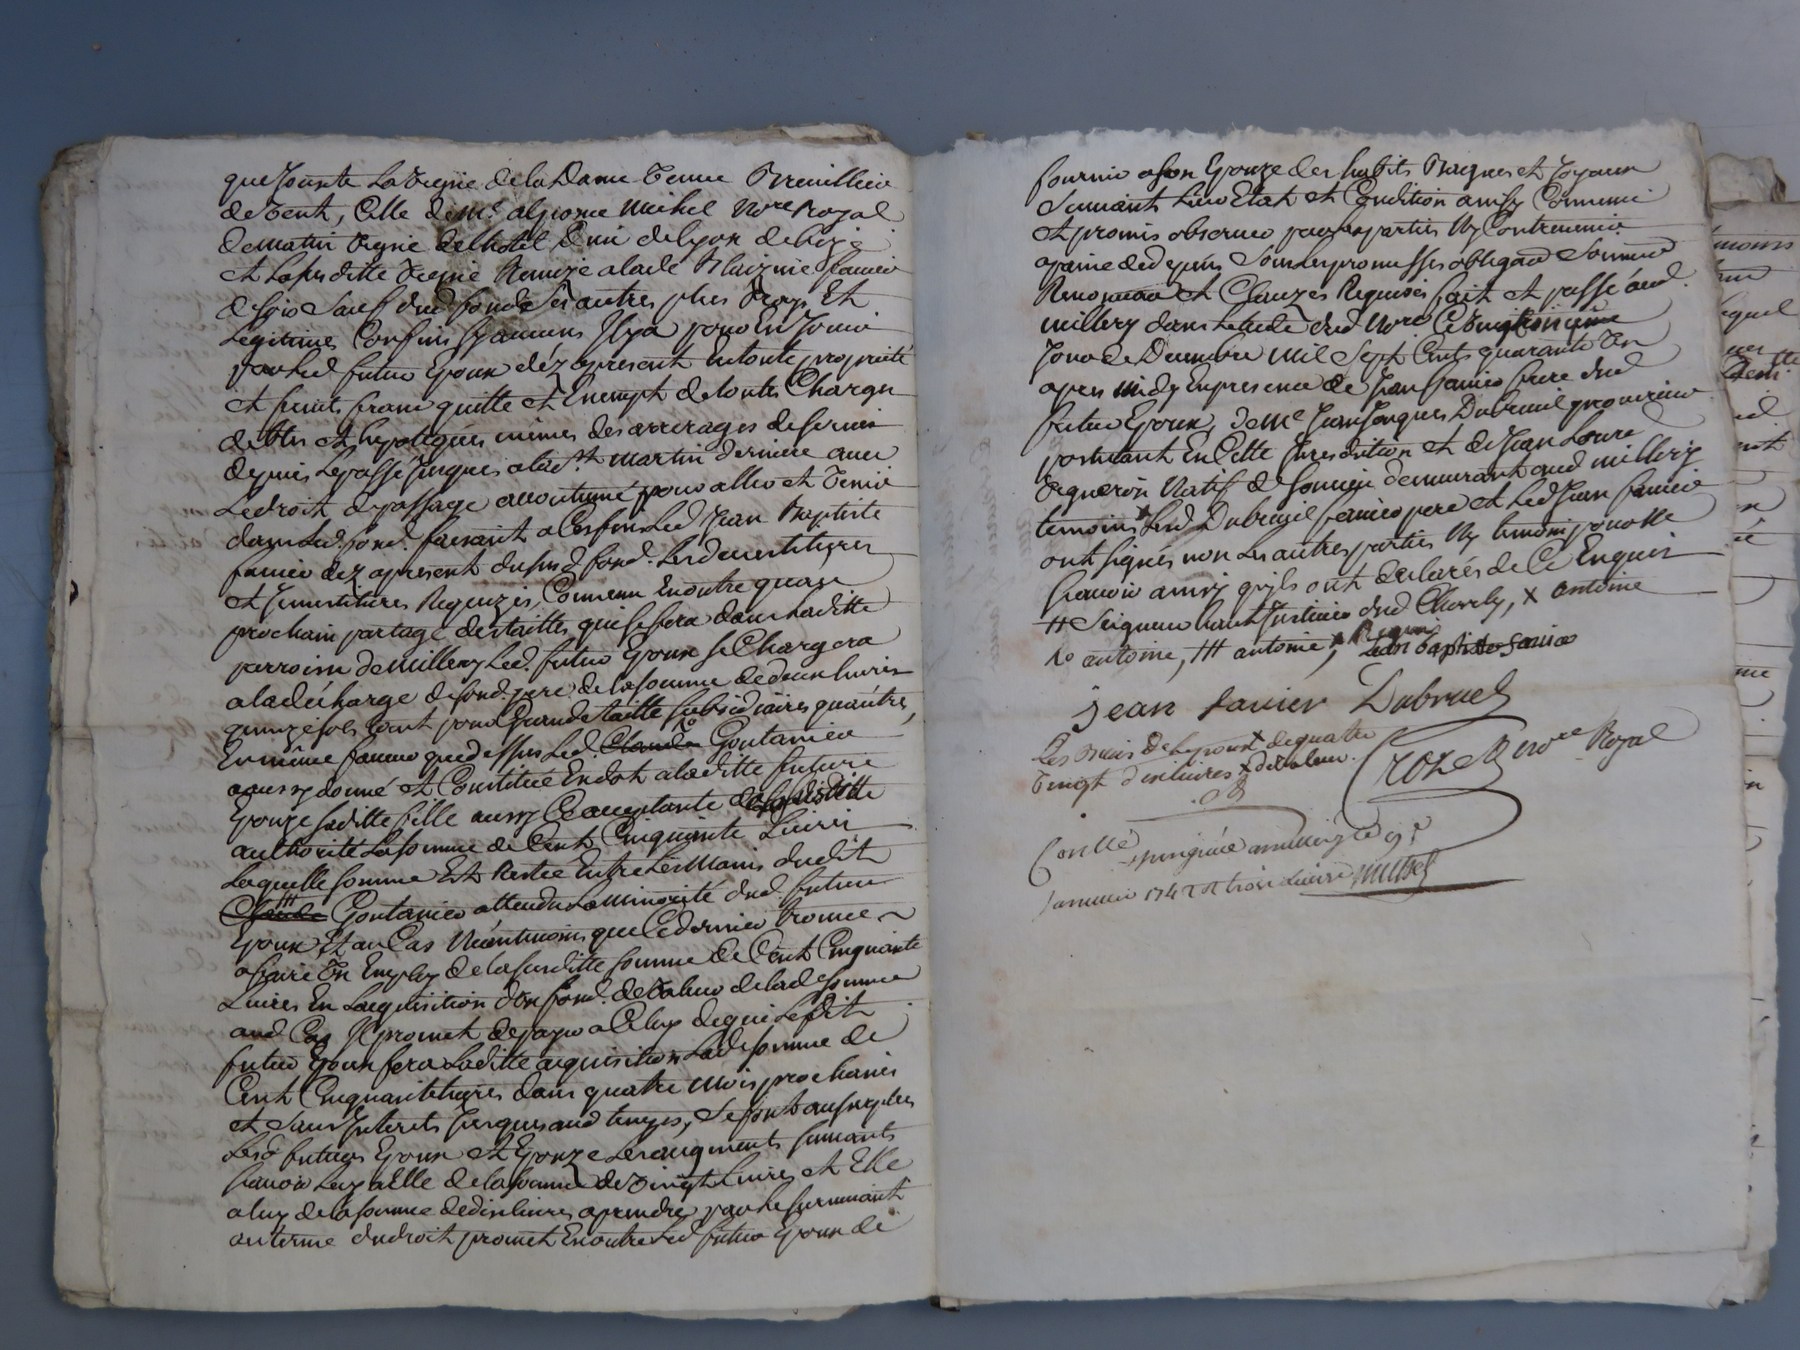 que jouxte la vigne de la Dame veuve
de vent, Celle de Me alphonse Michel Nore Royal
de matin vigne de l'hotel Dieu de lyon de bize
et la susditte vigne
de soir sauf dud fond ses autres plus vrays Et
Legitimes Confins sy aucuns Il y a pour En Jouir
par led futur Epoux déz apresent En toute propriété
et fruits franc quitte et Exempt de toutes Charges
debtes et hypoteques mêmes des arrerages de servis
depuis le passé Jusques a la st martin derniere avec
Le droit de passage accoutumé pour aller et venir
dans led. fond. faisant a Ces fins led Jean Baptiste
fanier déz apresent du susd fond. les devestitures
et Jnvestitures Requizes, Convenu En outre qu'au
prochain partage des tailles qui se fera dans laditte
parroisse de millery led. futur Epoux se Chargera
a la décharge de sond. pere de la somme de deux livres
quinze sols tant pour Grande taille subsidiaires quautres,
En même faveur que dessus led. Claude 1o Goutanier
a aussy donné et Constitué En dot a laditte future
Epouze saditte fille aussy Acceptante de la susditte
authorité la somme de Cent Cinquante Livres
Laquelle somme Est Restée Entre les Mains dudit
Claude ttt Goutanier attendu la minorité dud. futur
Epoux, Et au Cas Néantmoins que Ce dernier trouve
a faire Un Employ de la susditte somme de Cent Cinquante
Livres En l'acquisition d'un fond. de valeur de lade somme
aud Cas Il promet de payer a Celuy de qui Ledit
futur Epoux fera laditte acquisition lade somme de
Cent Cinquante livres dans quatre mois prochains
et sans Jnterets Jusques aud temps, Se font au surplus
Lesd futurs Epoux et Epouze les augments suivants
scavoir luy a Elle de la somme de vingt Livres et Elle
a luy de la somme de dix livres a prendre par le survivant
au terme du droit promet En outre led futur Epoux de
fournir a son Epouze des habits Bagues et Joyaux
Suivant leur Etat et Condition ainsy Convenu
et promis observer par les parties Ny Contrevenir
a peine de tous depens sous les promesses obligaons soumons
Renonciaons et Clauzes Requises fait et passé aud.
millery dans l'etude dud Nore Ce vingt troisieme
Jour de Decembre mil sept Cents quarante Un
apres midy En presence de Jean fanier frere dud
futur Epoux, de Me Jean Jacques Dubreuil procureur
postulant En Cette Jurisdiction et de Jean Loure
vigneron Natif de demeurant aud millery
temoins Lesd Dubreuil fanier pere et led Jean fanier
ont signés non les autres parties Ny temoin pour ne
scavoir ainsy qu'ils ont declarés de Ce Enquis
tt Seigneur haut Justicier dud Charly, x antoine
1o antoine, ttt antoine, x Requis Jean baptiste fanier
jean fanier Dubreuil
Les biens de l'epoux x de quatre
vingt dix livres x de valeur.
Crozet nore Royal
Conllé
a millery le 9e
Janvier 1742 Rt trois livres Michel